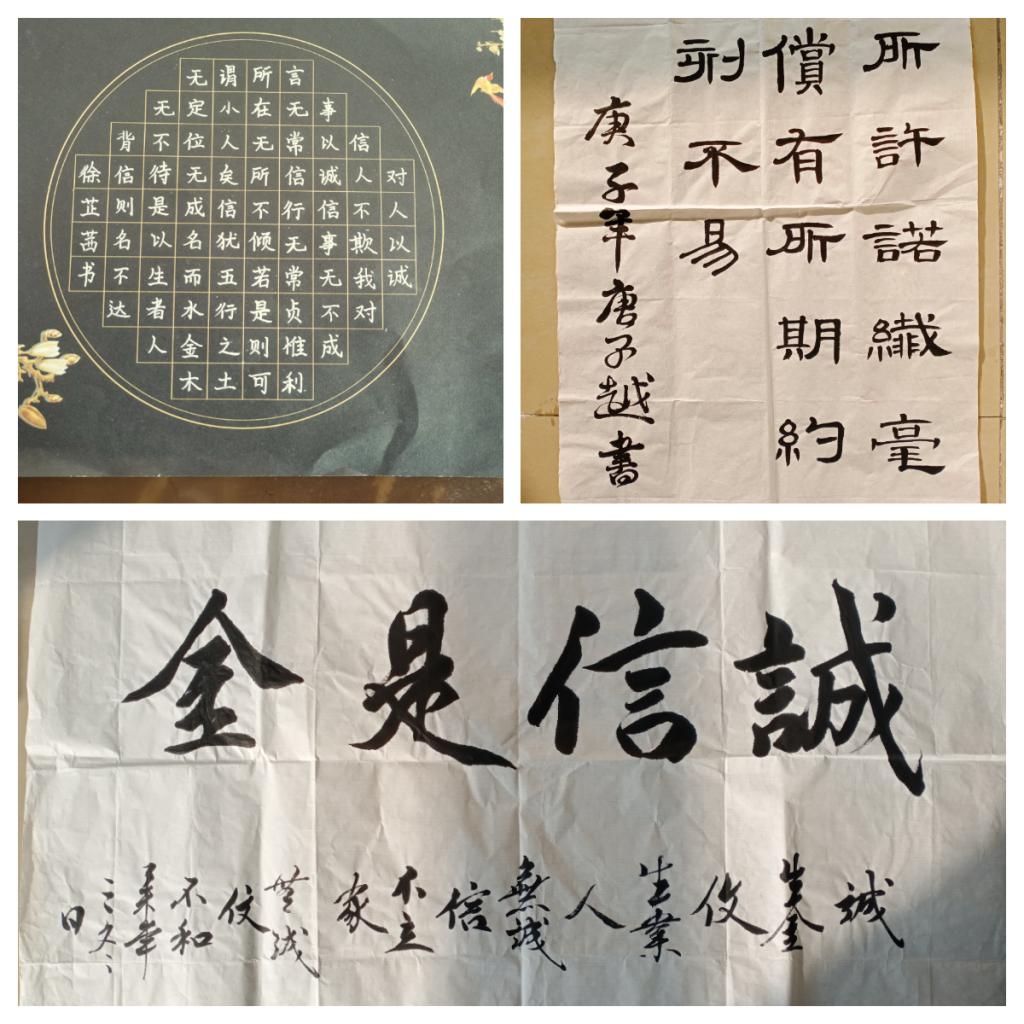 对人以诚
信人不欺我对
事以诚信事无不成
言无常信行无常贞惟利
所在无所不倾若是则可
谓小人矣信犹五行之土
无定位无成名而水金木
无不待是以生者人
背信则名不达
徐芷茜书
所許諾纖毫
償有所期約
刻不易
庚子年唐子越書
誠信是金
誠
生金
生業
人
無誠
信
不立
家
無誠
不和
日